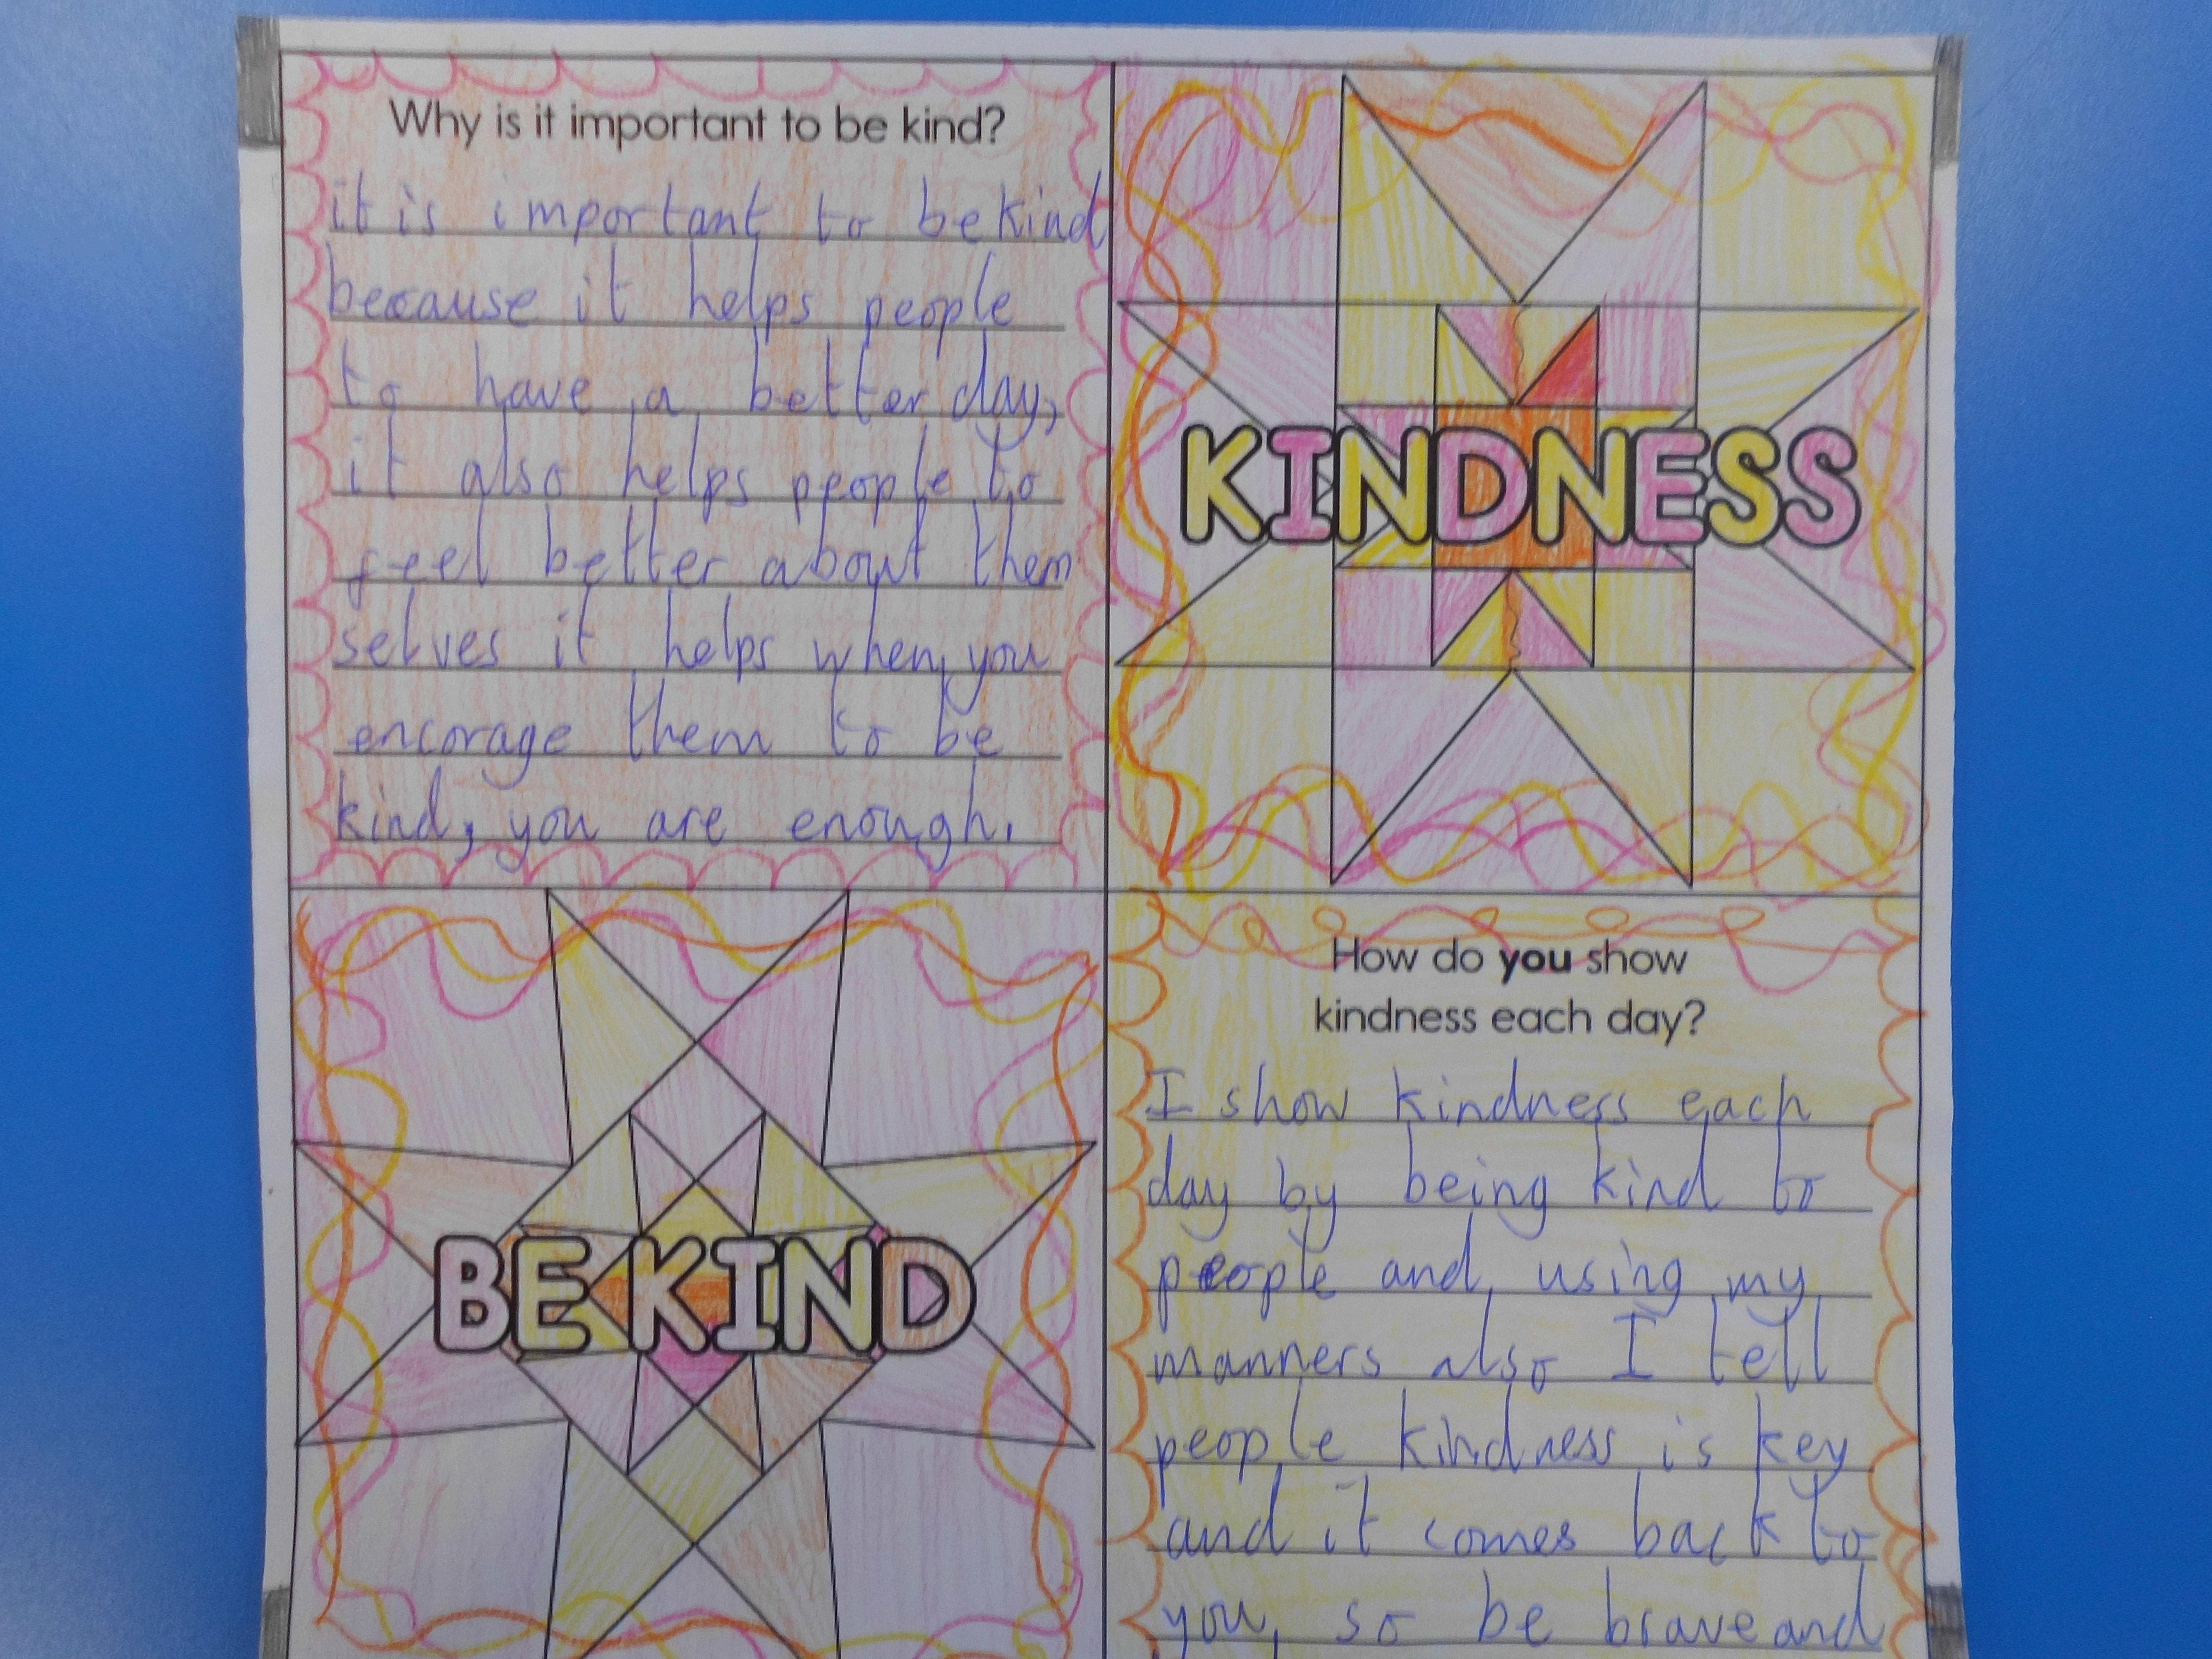 Why is it important to be kind?
it is important to be kind
because it helps people
to have a better day,
it also helps people to
feel better about them
selves it helps when you
encorage them to be
kind, you are enough.
KINDNESS
BE KIND
How do you show
kindness each day?
I show kindness each
day by being kind to
people and using my
manners also I tell
people kindness is key
and it comes back to
you, so be brave and